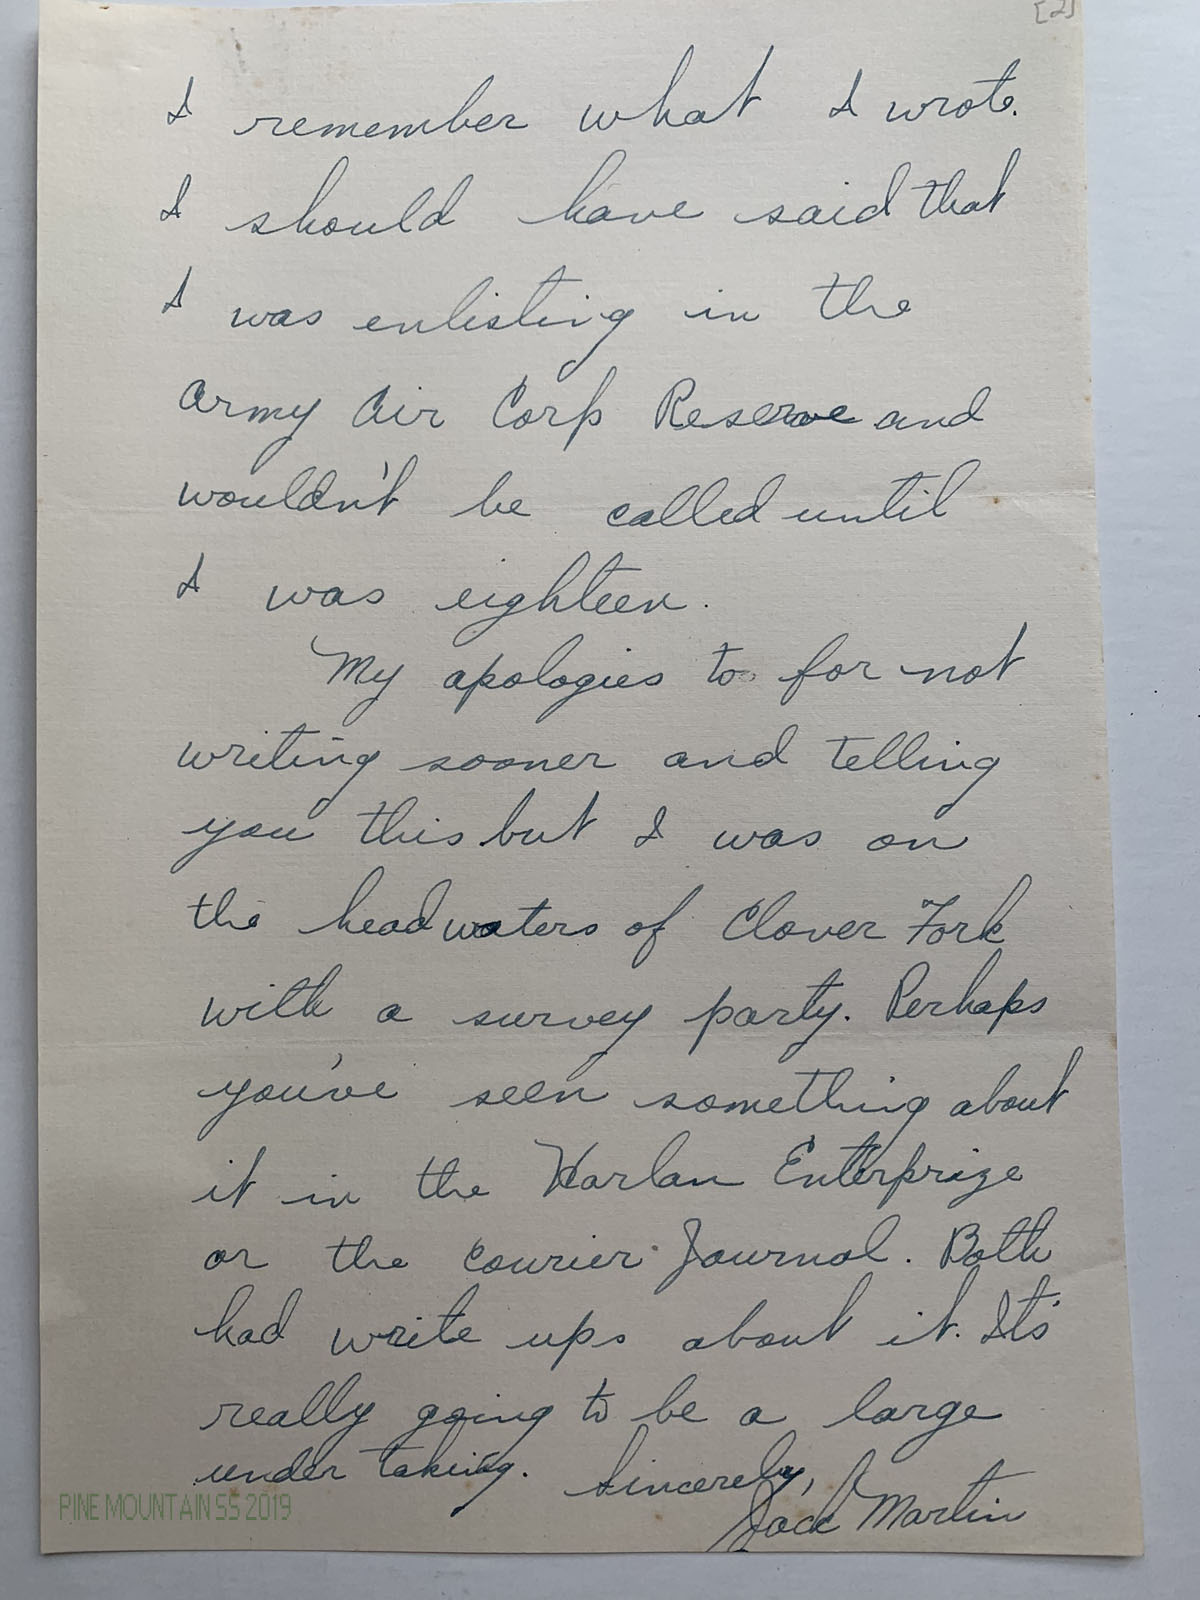 [2]
I remember what I wrote.
I should have said that
I was enlisting in the
Army Air Corp Reserve and
wouldn't be called until
I was eighteen.
My apologies to for not
writing sooner and telling
you this but I was on
the headwaters of Clover Fork
with a survey party. Perhaps
you've seen something about
it in the Harlan Enterprize
or the Courier Journal. Both
had write ups about it. It's
really going to be a large
under taking. Sincerely,
Jack Martin
PINE MOUNTAIN SS 2019